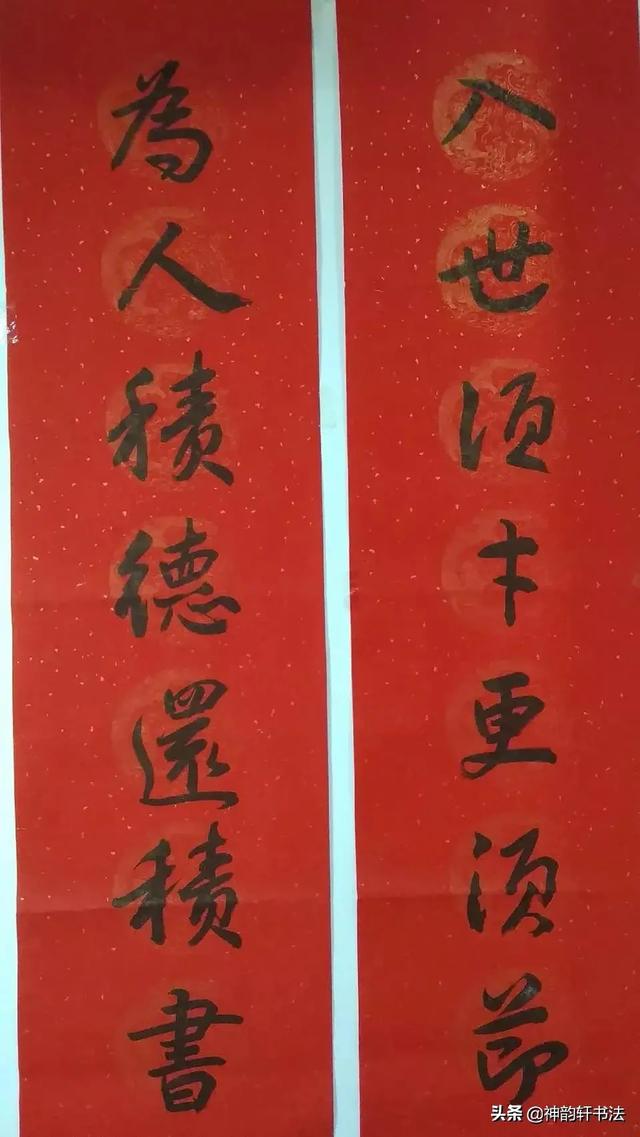 入世須才更須節
為人積德還積書
头条 @神韵轩书法